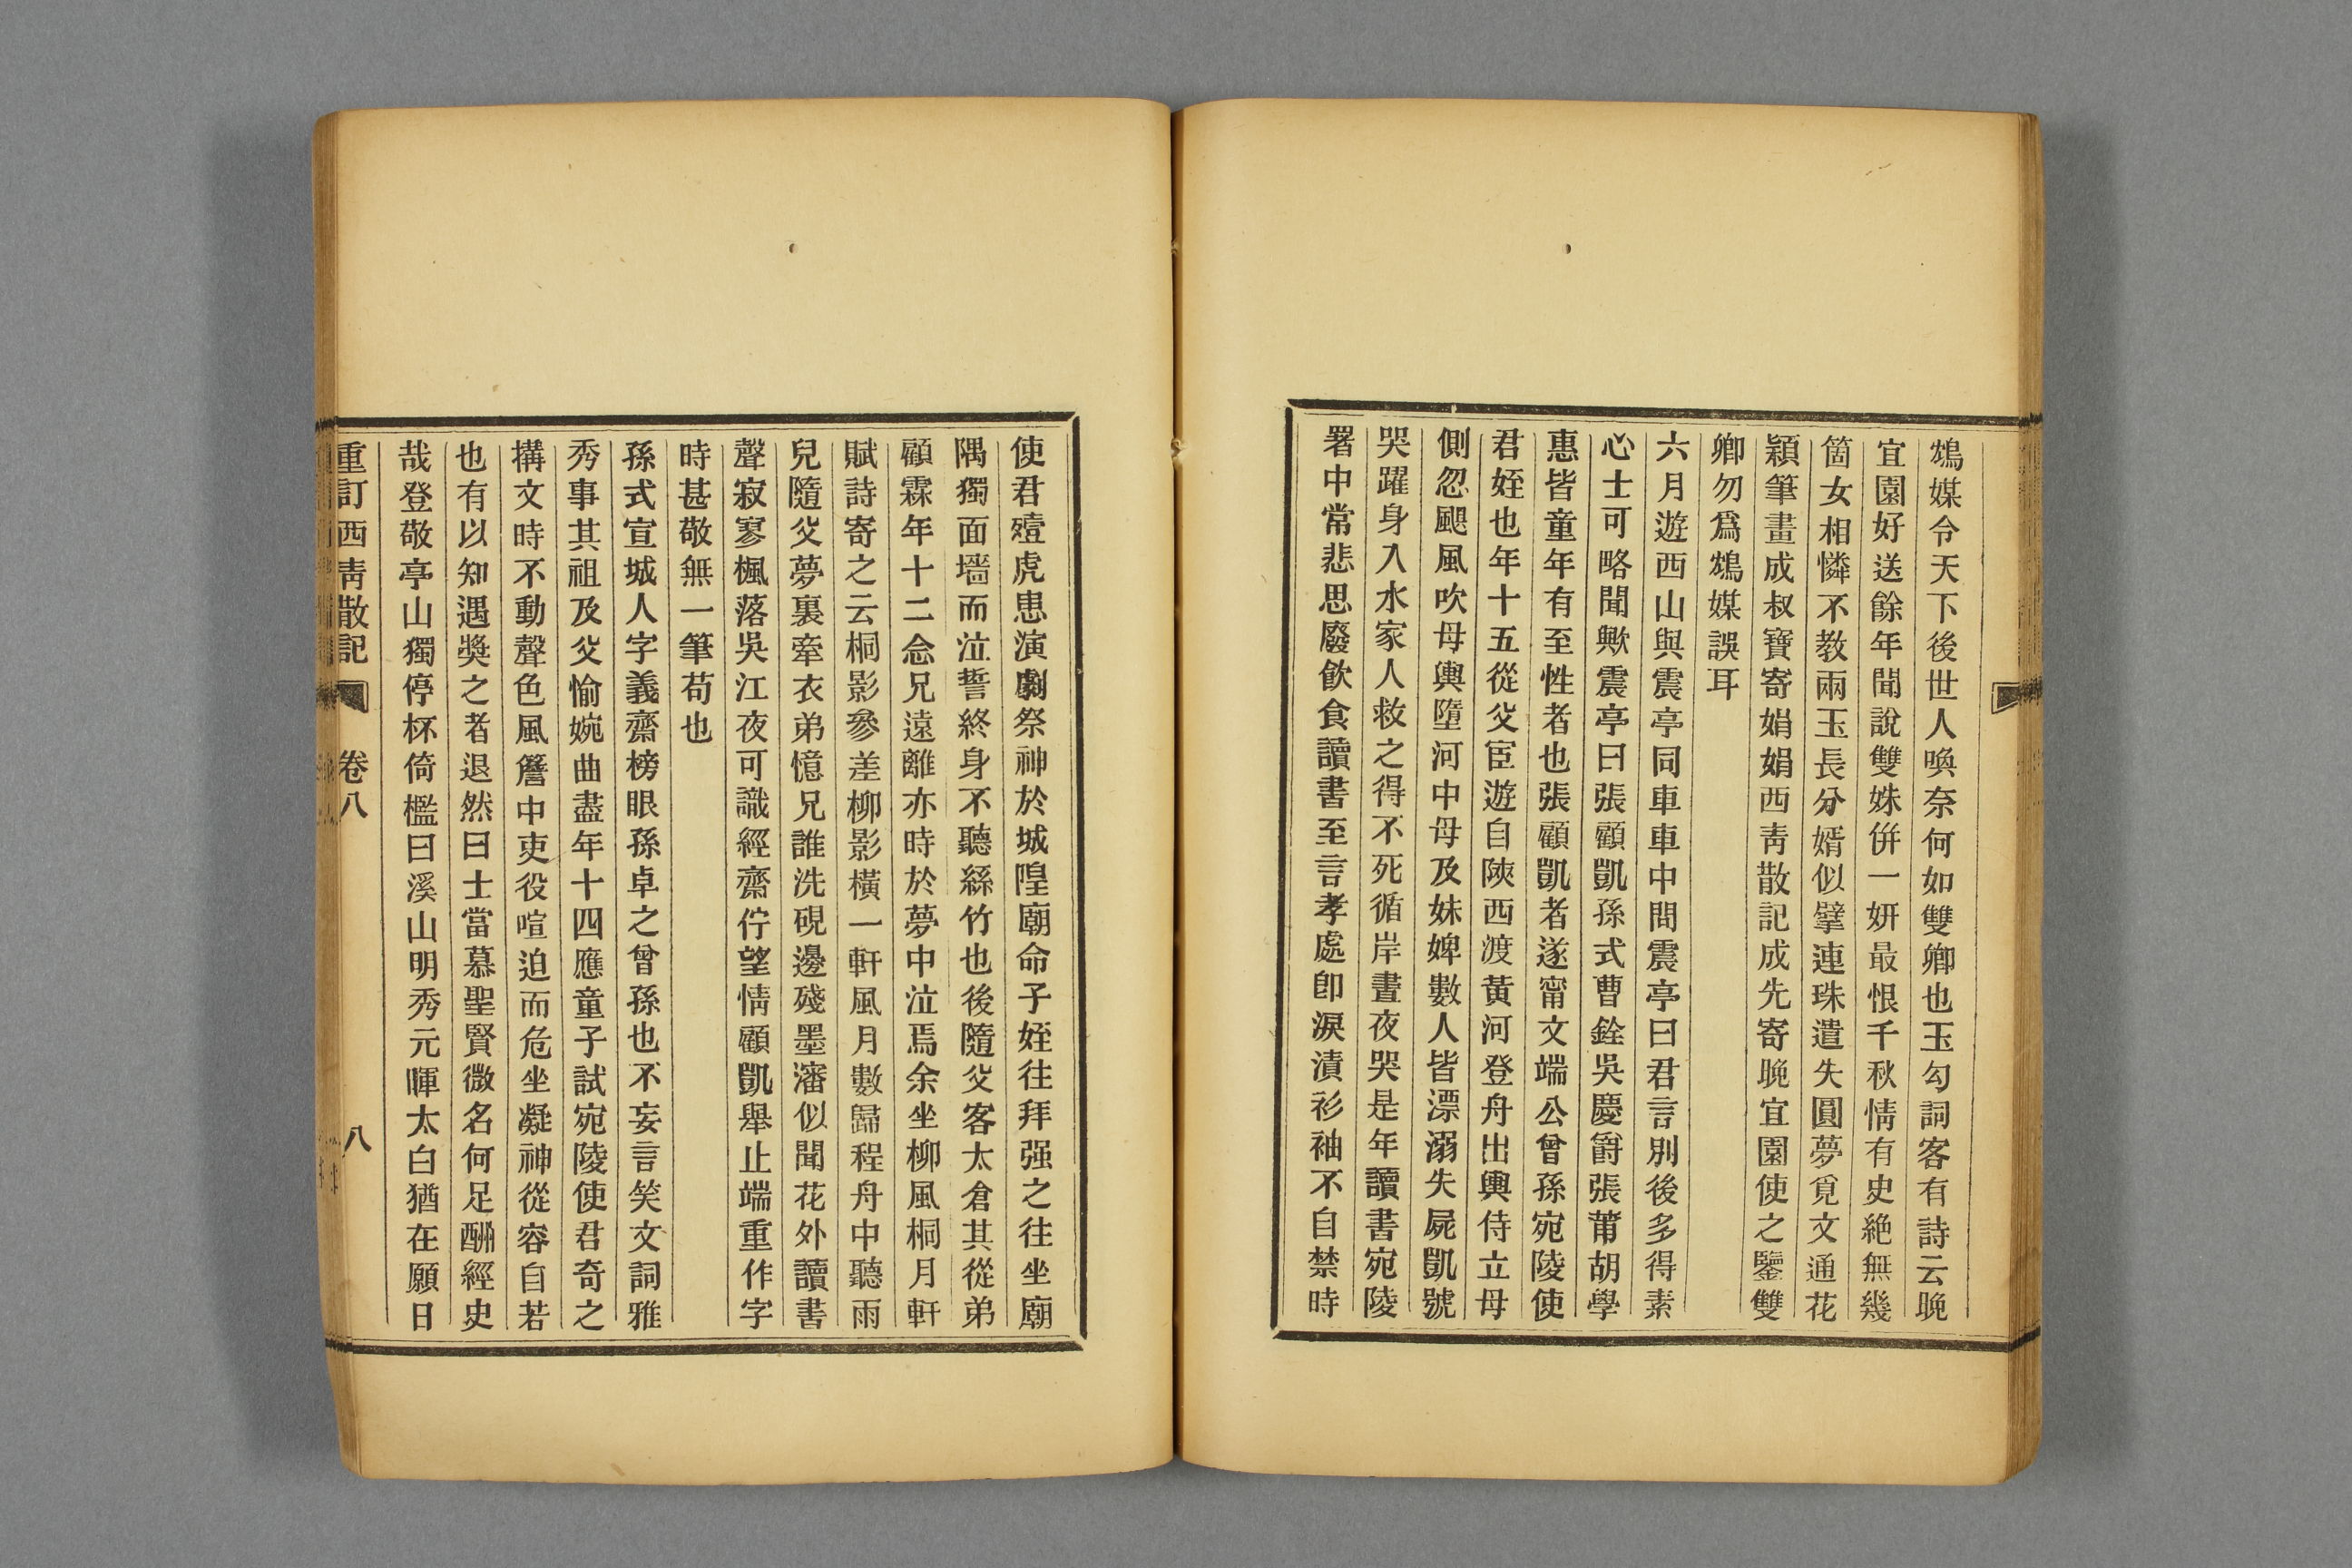 鴆媒令天下後世人喚奈何如雙卿也玉勾詞客有詩云晚
宜園好送餘年聞說雙姝併一妍最恨千秋情有史絶無幾
箇女相憐不教兩玉長分婿似擘連珠遣失圓夢覓文通花
穎筆畫成叔寶寄娟娟西靑散記成先寄晚宜園使之鑒雙
卿勿爲鴆媒誤耳
六月遊西山與震亭同車車中問震亭曰君言別後多得素
心士可略聞歟震亭曰張顧凱孫式曹銓吳慶爵張莆胡學
惠皆童年有至性者也張顧凱者遂甯文端公曾孫宛陵使
君姪也年十五從父宦遊自陜西渡黃河登舟出輿侍立母
側忽颶風吹母輿墮河中母及妹婢數人皆漂溺失屍凱號
哭躍身入水家人救之得不死循岸晝夜哭是年讀書宛陵
署中常悲思廢飲食讀書至言孝處卽淚漬衫袖不自禁時
使君殪虎患演劇祭神於城隍廟命子姪往拜强之往坐廟
隅獨面墻而泣誓終身不聽絲竹也後隨父客太倉其從弟
顧霖年十二念兄遠離亦時於夢中泣焉余坐柳風桐月軒
賦詩寄之云桐影參差柳影橫一軒風月數歸程舟中聽雨
兒隨父夢裏牽衣弟憶兄誰洗硯邊殘墨瀋似聞花外讀書
聲寂寥楓落吳江夜可識經齋佇望情顧凱舉止端重作字
時甚敬無一筆苟也
孫式宣城人字義齋榜眼孫卓之曾孫也不妄言笑文詞雅
秀事其祖及父愉婉曲盡年十四應童子試宛陵使君奇之
搆文時不動聲色風簷中吏役喧迫而危坐凝神從容自若
也有以知遇奬之者退然曰士當慕聖賢微名何足酬經史
哉登敬亭山獨停杯倚檻曰溪山明秀元暉太白猶在願日
重訂西靑散記 卷八 八